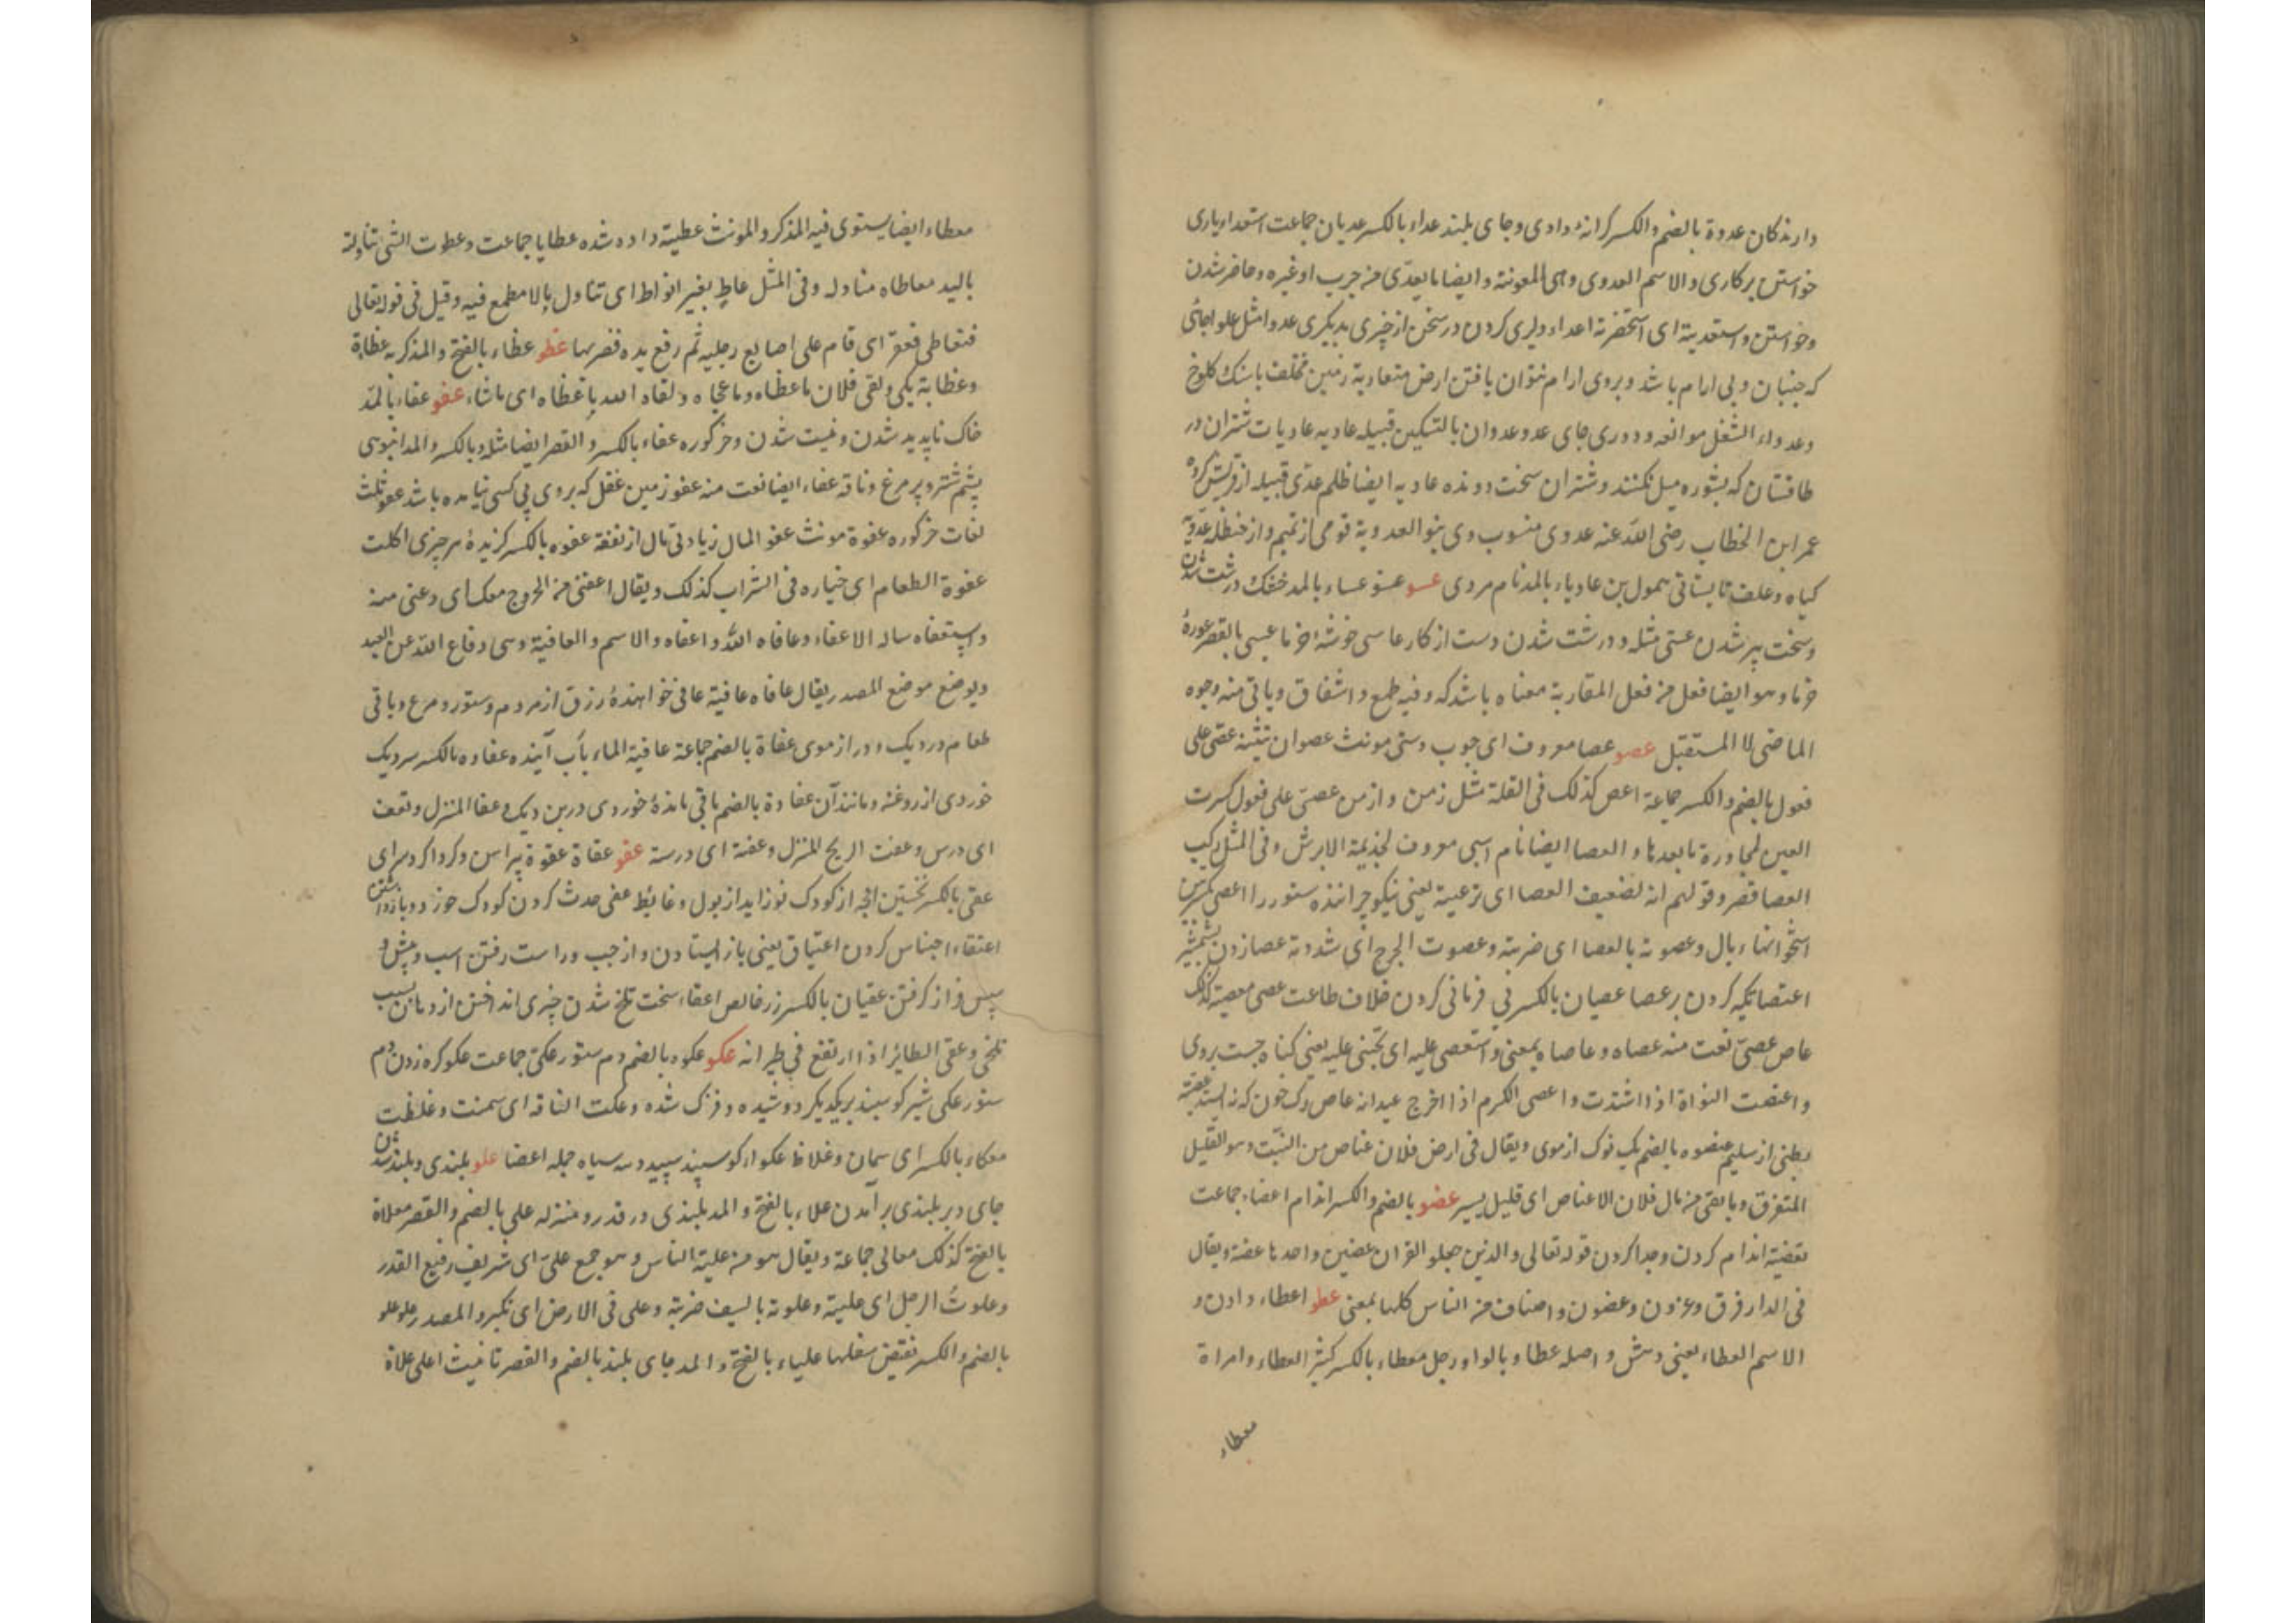 دارندکان عدوة بالضم والکسر کرانهٔ وادی وجای بلند عداء بالکسر عدیان جماعت استعداء یاری
خواستن برکاری والاسم العدوی وهی المعونة وایضا ما یعدّی من جرب او غیره وحاضر شدن
وخواستن واستعدیته ای استحضرته اعداء دلیری کردن در سخن از چیزی بدیکری عدوا مثل علوا جائی
که جنبان وبی ارام باشد وبروی ارام نتوان یافتن ارض متعادیة زمین مختلف با سنک کلوخ
وعدواء الشغل موانعه ودوری جای عدو عدوان بالتسکین قبیله عادیه عادیات شتران در
طاقستان که بشوره میل نکنند وشتران سخت دونده عادیه ایضا ظلم عدی قبیله از قریش کروه
عمر ابن الخطاب رضی الله عنه عدوی منسوب وی بنو العدویة قومی از تمیم واز حنظله عدویة
کیاه وعلف تابستانی سمول بن عادیاء بالمد نام مردی عسو عسو عساء بالمد خشک درشت شدن
وسخت پیر شدن عستی مثله ودرشت شدن دست از کار عاسی خوشهٔ خرما عسی بالقصر غورهٔ
خرما وهو ایضا فعل من فعل المقاربة معناه باشد که وفیه طمع واشفاق ویاتی منه وجوه
الماضی لا المستقبل عصو عصا معروف ای چوب دستی مونث عصوان تثنیه عصی علی
فعول بالضم والکسر جماعة اعص کذلک فی القلة مثل زمن وازمن عصی علی فعول کسرت
العین لمجاورة ما بعدها والعصا ایضا نام اسبی معروف لجذیمة الابرش وفی المثل رکب
العصا قصیر وقولهم انه لضعیف العصا ای ترعیة یعنی نیکو چراننده ستور را اعصی کمرین
استخوانها بال وعصوته بالعصا ای ضربته وعصوت الجرح ای شددته عصا زدن بشمشیر
اعتصا تکیه کردن بر عصا عصیان بالکسر بی فرمانی کردن خلاف طاعت عصی معصیة کذلک
عاص عصیّ نعت منه عصاه وعاصاه بمعنی واستعصی علیه ای تجنی علیه یعنی کناه جست بروی
واعتصت النواة اذا اشتدت واعصی الکرم اذا اخرج عیدانه عاص رک خون که نه ایستد عصیّة
بطنی از سلیم عنصوه بالضم یک نوک از موی ویقال فی ارض فلان عناص من النبت وهو القلیل
المتفرق وما بقی من مال فلان الا عناص ای قلیل یسیر عضو بالضم والکسر اندام اعضاء جماعت
تعضیة اندام کردن وجدا کردن قوله تعالی والذین جعلو القران عضین واحدها عضة ویقال
فی الدار فرق وعزون وعضون واصناف من الناس کلها بمعنی عطو اعطاء دادن و
الاسم العطاء یعنی دهش واصله عطاو بالواو رجل معطاء بالکسر کثیر العطاء وامراة
معطاء
معطاء ایضا یستوی فیه المذکر والمونث عطیة داده شده عطایا جماعت وعطوت الشی تناولته
بالید معاطاه مناوله وفی المثل عاطٍ بغیر انواط ای تناول بالا مطمع فیه وقیل فی قوله تعالی
فتعاطی فعقر ای قام علی اصابع رجلیه ثم رفع یده فضربها عظو عظاء بالفتح والمد کربه عظاءة
وعظایة یکی ولقی فلان ما عظاه وما عجاه ولقاه الله ما عظاه ای ما شاء عفو عفاء بالمد
خاک ناپدید شدن ونیست شدن وخرکوره عفاء بالکسر والقصر ایضا مثله وبالکسر والمد انبوهی
پشم شتر وپر مرغ وناقه عفاء ایضا نعت منه عفو زمین غفل که بروی پی کسی نیامده باشد عفو ثلث
لغات خرکوره عفوة مونث عفو المال زیادتی مال از نفقة عفوه بالکسر کزیدهٔ هر چیزی اکلت
عفوة الطعام ای خیاره فی الشراب کذلک ویقال اعفنی من الخروج معک ای دعنی منه
واستعفاه ساله الاعفاء وعافاه الله واعفاه والاسم والعافیة وهی دفاع الله عن العبد
ویوضع موضع المصدر یقال عافاه عافیة عافی خواهندهٔ رزق از مردم وستور ومرغ وباقی
طعام در دیک ودراز موی عفاة بالضم جماعة عافیة الماء بآب آینده عفاوه بالکسر سر دیک
خوردی از روغنه ومانند آن عفاوة بالضم باقی ماندهٔ خوردی در بن دیک وعفا المنزل وتعفت
ای درس وعفت الریح المنزل وعفته ای درسته عقو عقاة عقوة پیرامن وکرداکرد سرای
عقی بالکسر نخستین انچه از کودک نوزاید از بول وغائط عقی حدث کردن کودک خوز ودو بازداشتن
اعتقاء احتباس کردن اعتیاق یعنی باز ایستادن واز چپ وراست رفتن اسب وپیش و
سپس فراز کرفتن عقیان بالکسر زر خالص اعقاء سخت تلخ شدن چیزی انداختن از دهان بسبب
تلخی وعقی الطائر اذا ارتفع فی طیرانه عکو عکوه بالضم دم ستور عکی جماعت عکو کره زدن دم
ستور عکی شیر کوسپند بر یکدیکر دوشیده وفزک شده وعکت الناقة ای سمنت وغلظت
معکاء بالکسر ای سمان وغلاظ عکواء کوسپند سپید دنبه سیاه جمله اعضا علو بلندی وبلند شدن
جای وبر بلندی برآمدن علاء بالفتح والمد بلندی در قدر ومنزله علی بالضم والقصر معلاة
بالفتح کذلک معالی جماعة ویقال هو من علیة الناس وهو جمع علیّ ای شریف رفیع القدر
وعلوتُ الرجل ای غلبته وعلوته بالسیف ضربته وعلی فی الارض ای تکبر والمصدر علو علو
بالضم والکسر نقیض سفلها علیاء بالفتح والمد جای بلند بالضم والقصر تانیث اعلی علاة